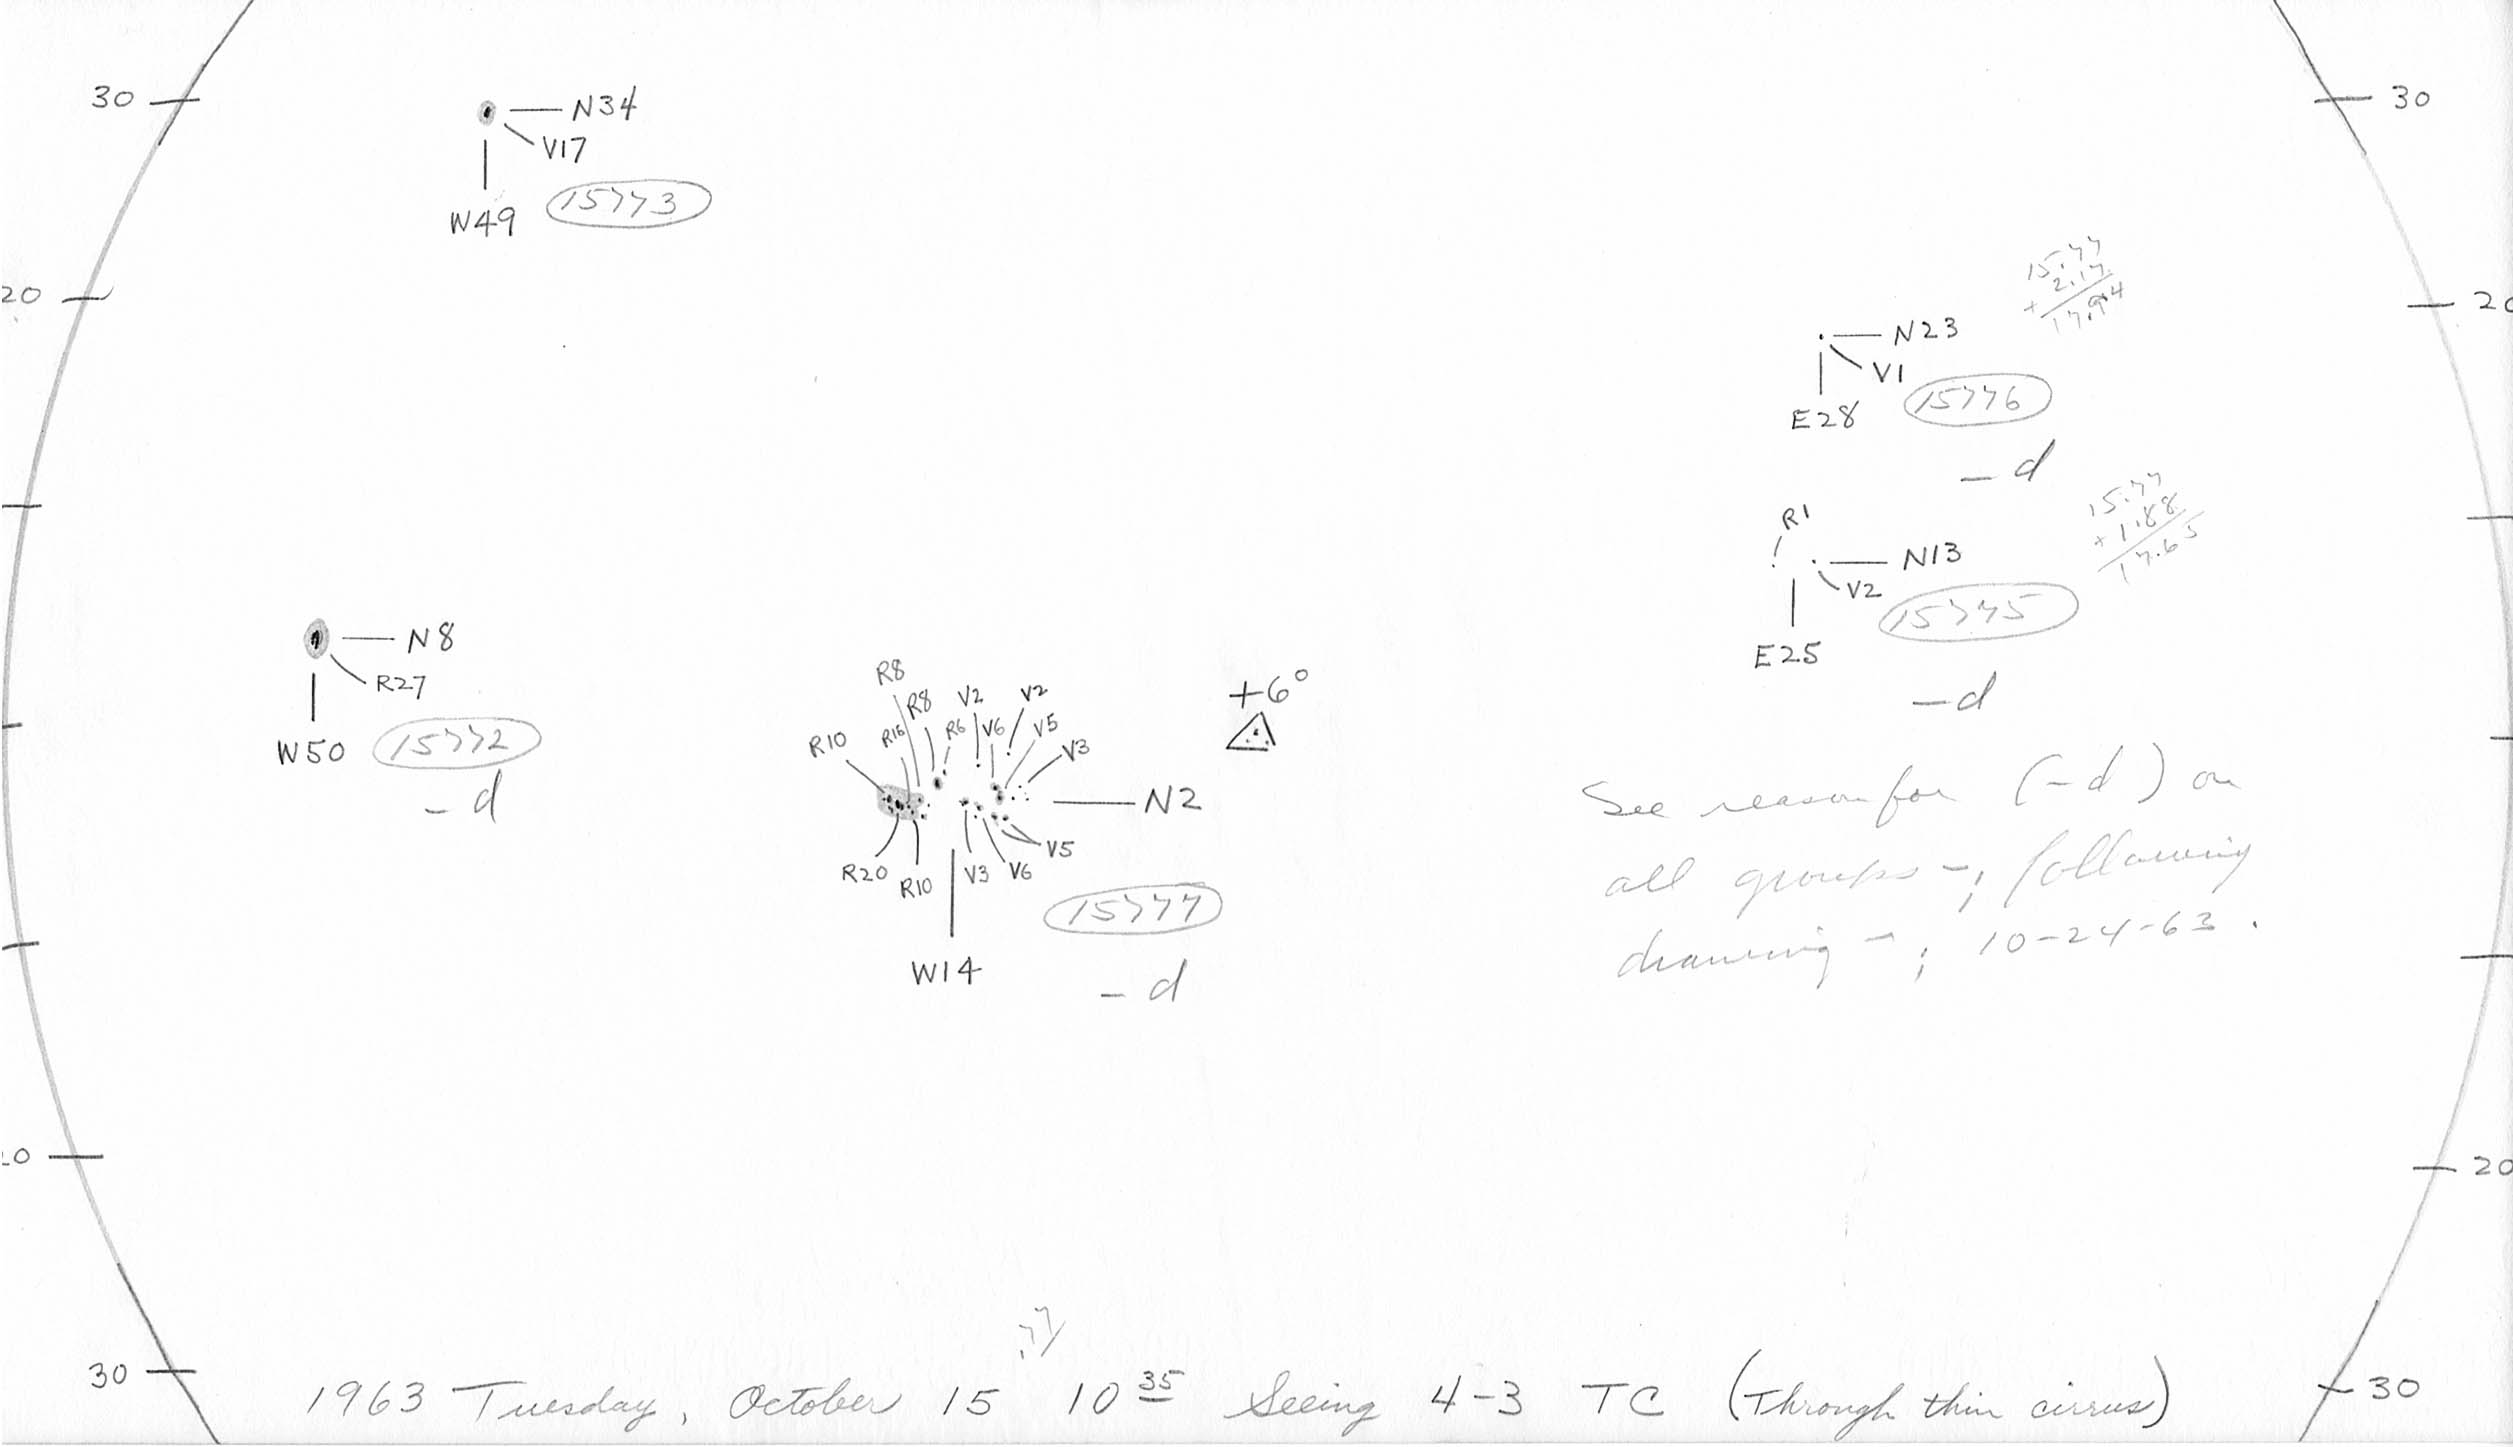 30
N34
V17
W49
15773
30
20
20
15.77
+ 2.17
17.94
N23
V1
E28
15776
- d
15.77
+ 1.88
17.65
R1
N13
V2
E25
15775
- d
N8
R27
W50
15772
- d
R8
R8
V2
V2
R10
R6
V6
V5
V3
+6°
N2
R20
R10
V3
V6
V5
15777
W14
- d
See reason for (-d) on
all groups -; following
drawing -; 10-24-63.
20
30
.77
30
1963 Tuesday, October 15 10 35 Seeing 4-3 TC (Through thin cirrus)